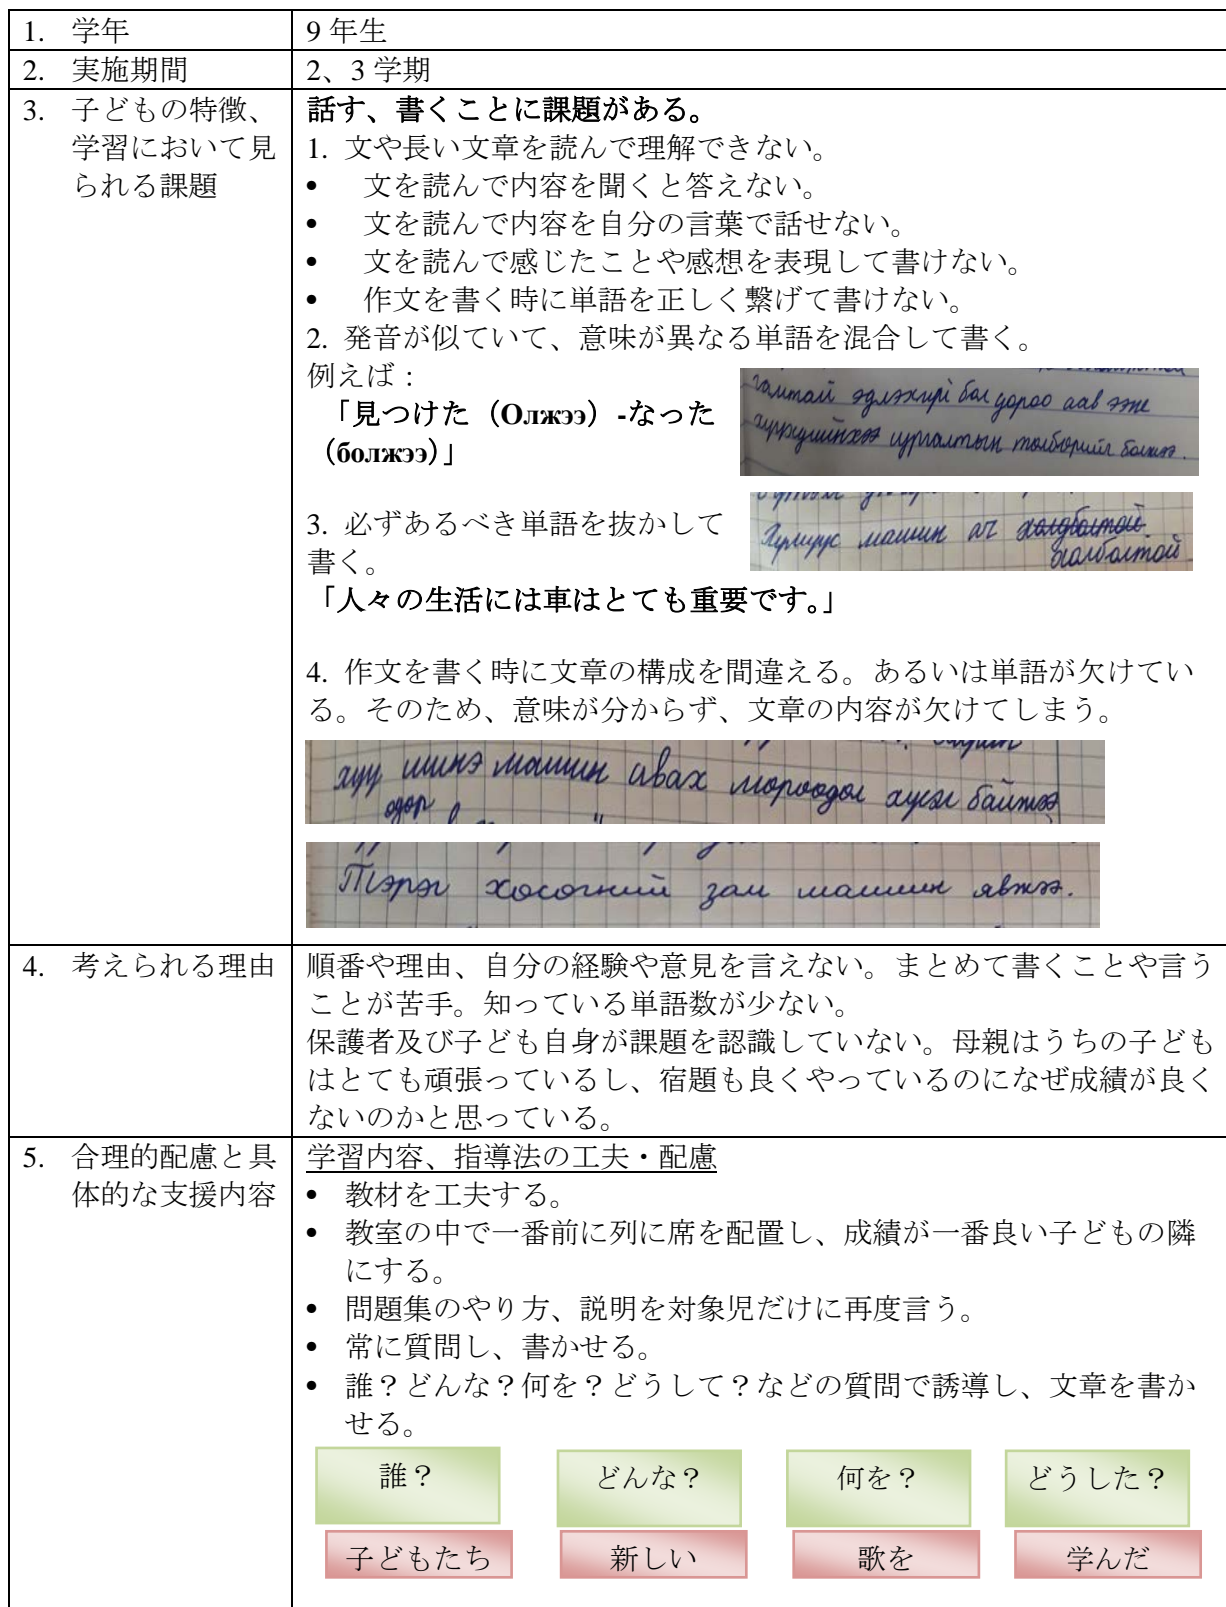 1. 学年
9 年生
2. 実施期間
2、3 学期
3. 子どもの特徴、
学習において見
られる課題
話す、書くことに課題がある。
1. 文や長い文章を読んで理解できない。
• 文を読んで内容を聞くと答えない。
• 文を読んで内容を自分の言葉で話せない。
• 文を読んで感じたことや感想を表現して書けない。
• 作文を書く時に単語を正しく繋げて書けない。
2. 発音が似ていて、意味が異なる単語を混合して書く。
例えば：
「見つけた（Олжээ）-なった
（болжээ）」
гамтай эдлэхгүй бол дороо аав ээж
сургалтын төлбөрийг болжээ.
3. 必ずあるべき単語を抜かして
書く。
Хүмүүс машин ач холбоотой
холболтой
「人々の生活には車はとても重要です。」
4. 作文を書く時に文章の構成を間違える。あるいは単語が欠けてい
る。そのため、意味が分からず、文章の内容が欠けてしまう。
хүү шинэ машин авах мөрөөдөл хүсэл байжээ
өдөр
Тэрэг хосогний зам машин явжээ.
4. 考えられる理由
順番や理由、自分の経験や意見を言えない。まとめて書くことや言う
ことが苦手。知っている単語数が少ない。
保護者及び子ども自身が課題を認識していない。母親はうちの子ども
はとても頑張っているし、宿題も良くやっているのになぜ成績が良く
ないのかと思っている。
5. 合理的配慮と具
体的な支援内容
学習内容、指導法の工夫・配慮
• 教材を工夫する。
• 教室の中で一番前に列に席を配置し、成績が一番良い子どもの隣
にする。
• 問題集のやり方、説明を対象児だけに再度言う。
• 常に質問し、書かせる。
• 誰？どんな？何を？どうして？などの質問で誘導し、文章を書か
せる。
誰？ どんな？ 何を？ どうした？
子どもたち 新しい 歌を 学んだ